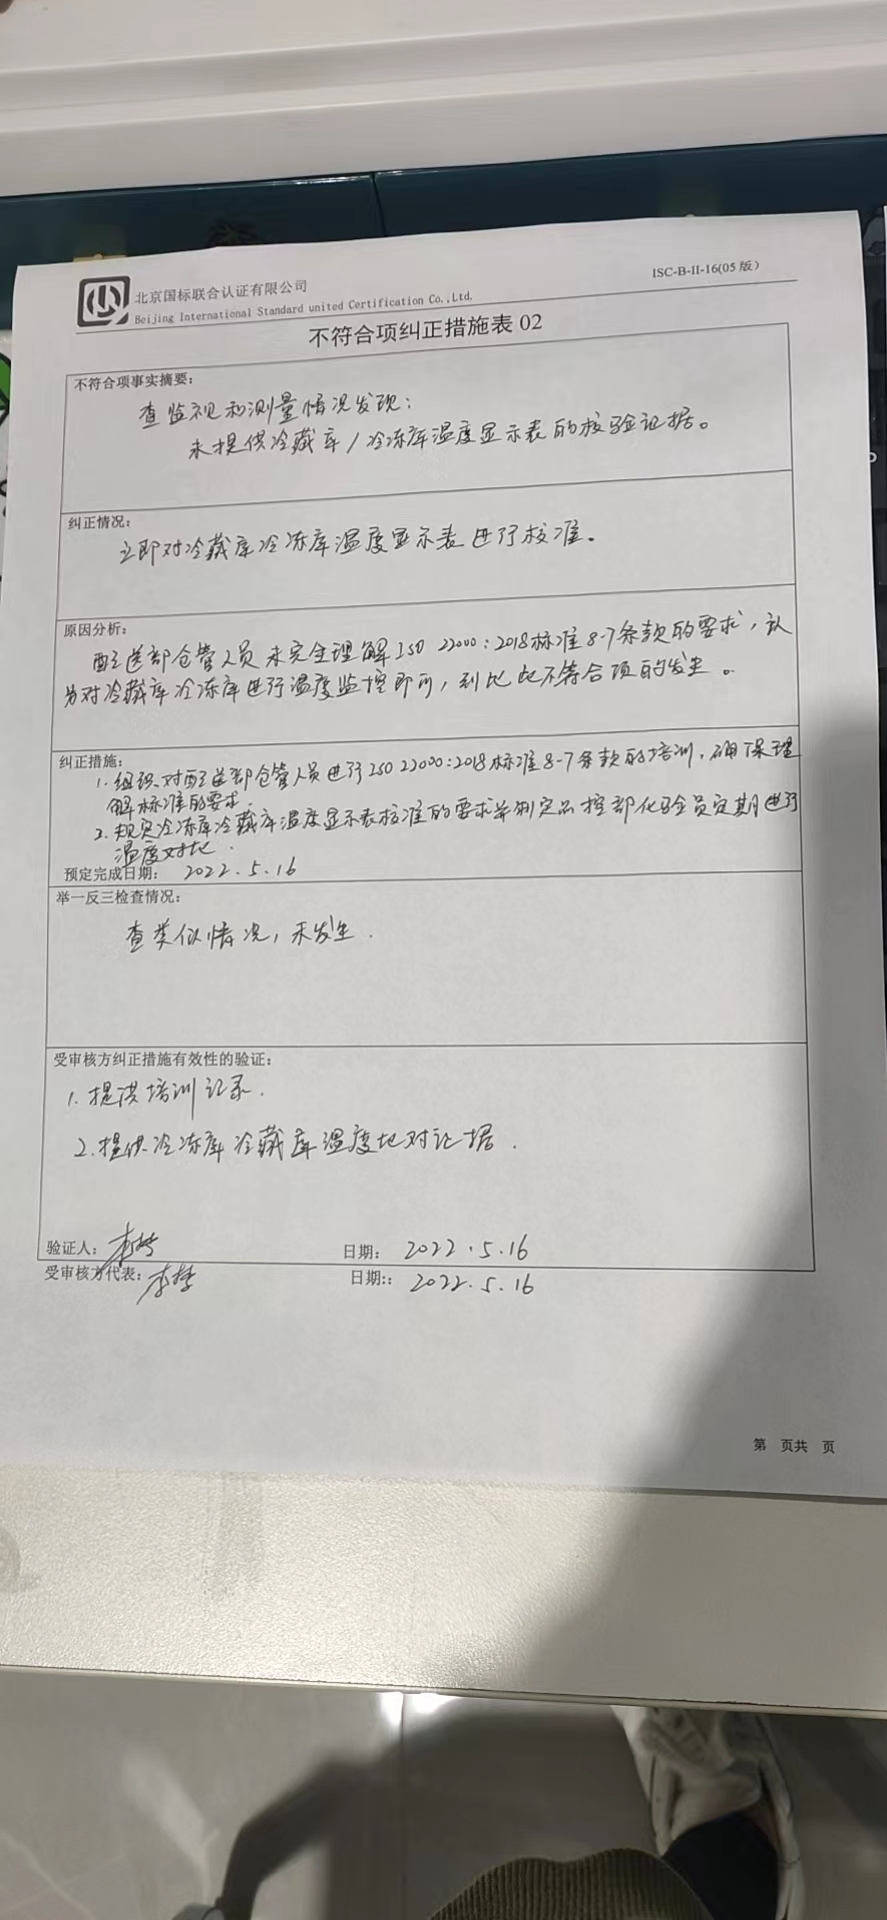 北京国标联合认证有限公司
Beijing International Standard united Certification Co.,Ltd.
ISC-B-II-16(05 版)
不符合项纠正措施表 02
不符合项事实摘要：
查监视和测量情况发现：
未提供冷藏库/冷冻库温度显示表的校验证据。
纠正情况：
立即对冷藏库冷冻库温度显示表进行校准。
原因分析：
配送部仓管人员未完全理解ISO 22000：2018标准8-7条款的要求，认
为对冷藏库冷冻库进行温度监控即可，到此不符合项的发生。
纠正措施：
1. 组织对配送部仓管人员进行ISO 22000:2018标准8-7条款的培训，确保理
解标准的要求.
2. 规定冷冻库冷藏库温度显示表校准的要求并制定品控部化验员定期进行
温度对比.
预定完成日期： 2022.5.16
举一反三检查情况：
查类似情况，未发生.
受审核方纠正措施有效性的验证：
1. 提供培训记录.
2. 提供冷冻库冷藏库温度比对证据.
验证人： 日期： 2022.5.16
受审核方代表： 日期:： 2022.5.16
第 页共 页